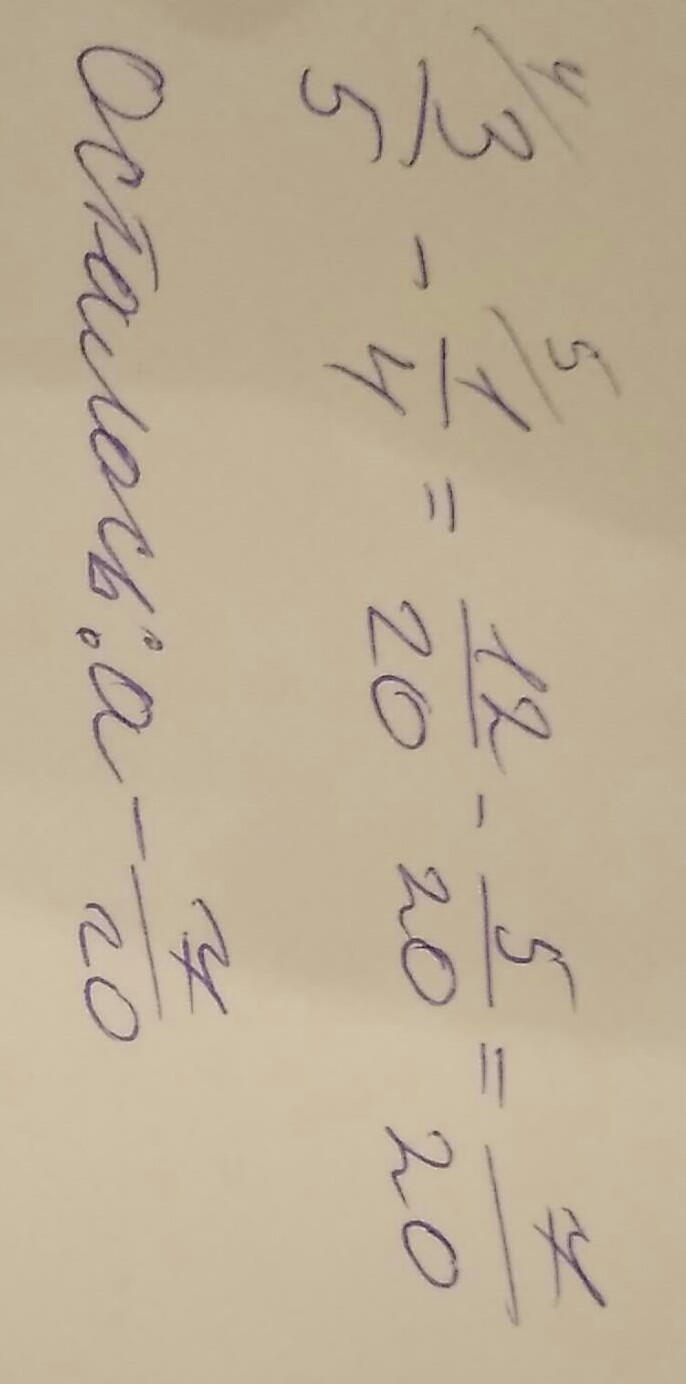 ⁴/3/5 - ⁵/1/4 = 12/20 - 5/20 = 7/20
Осталось: а - 7/20